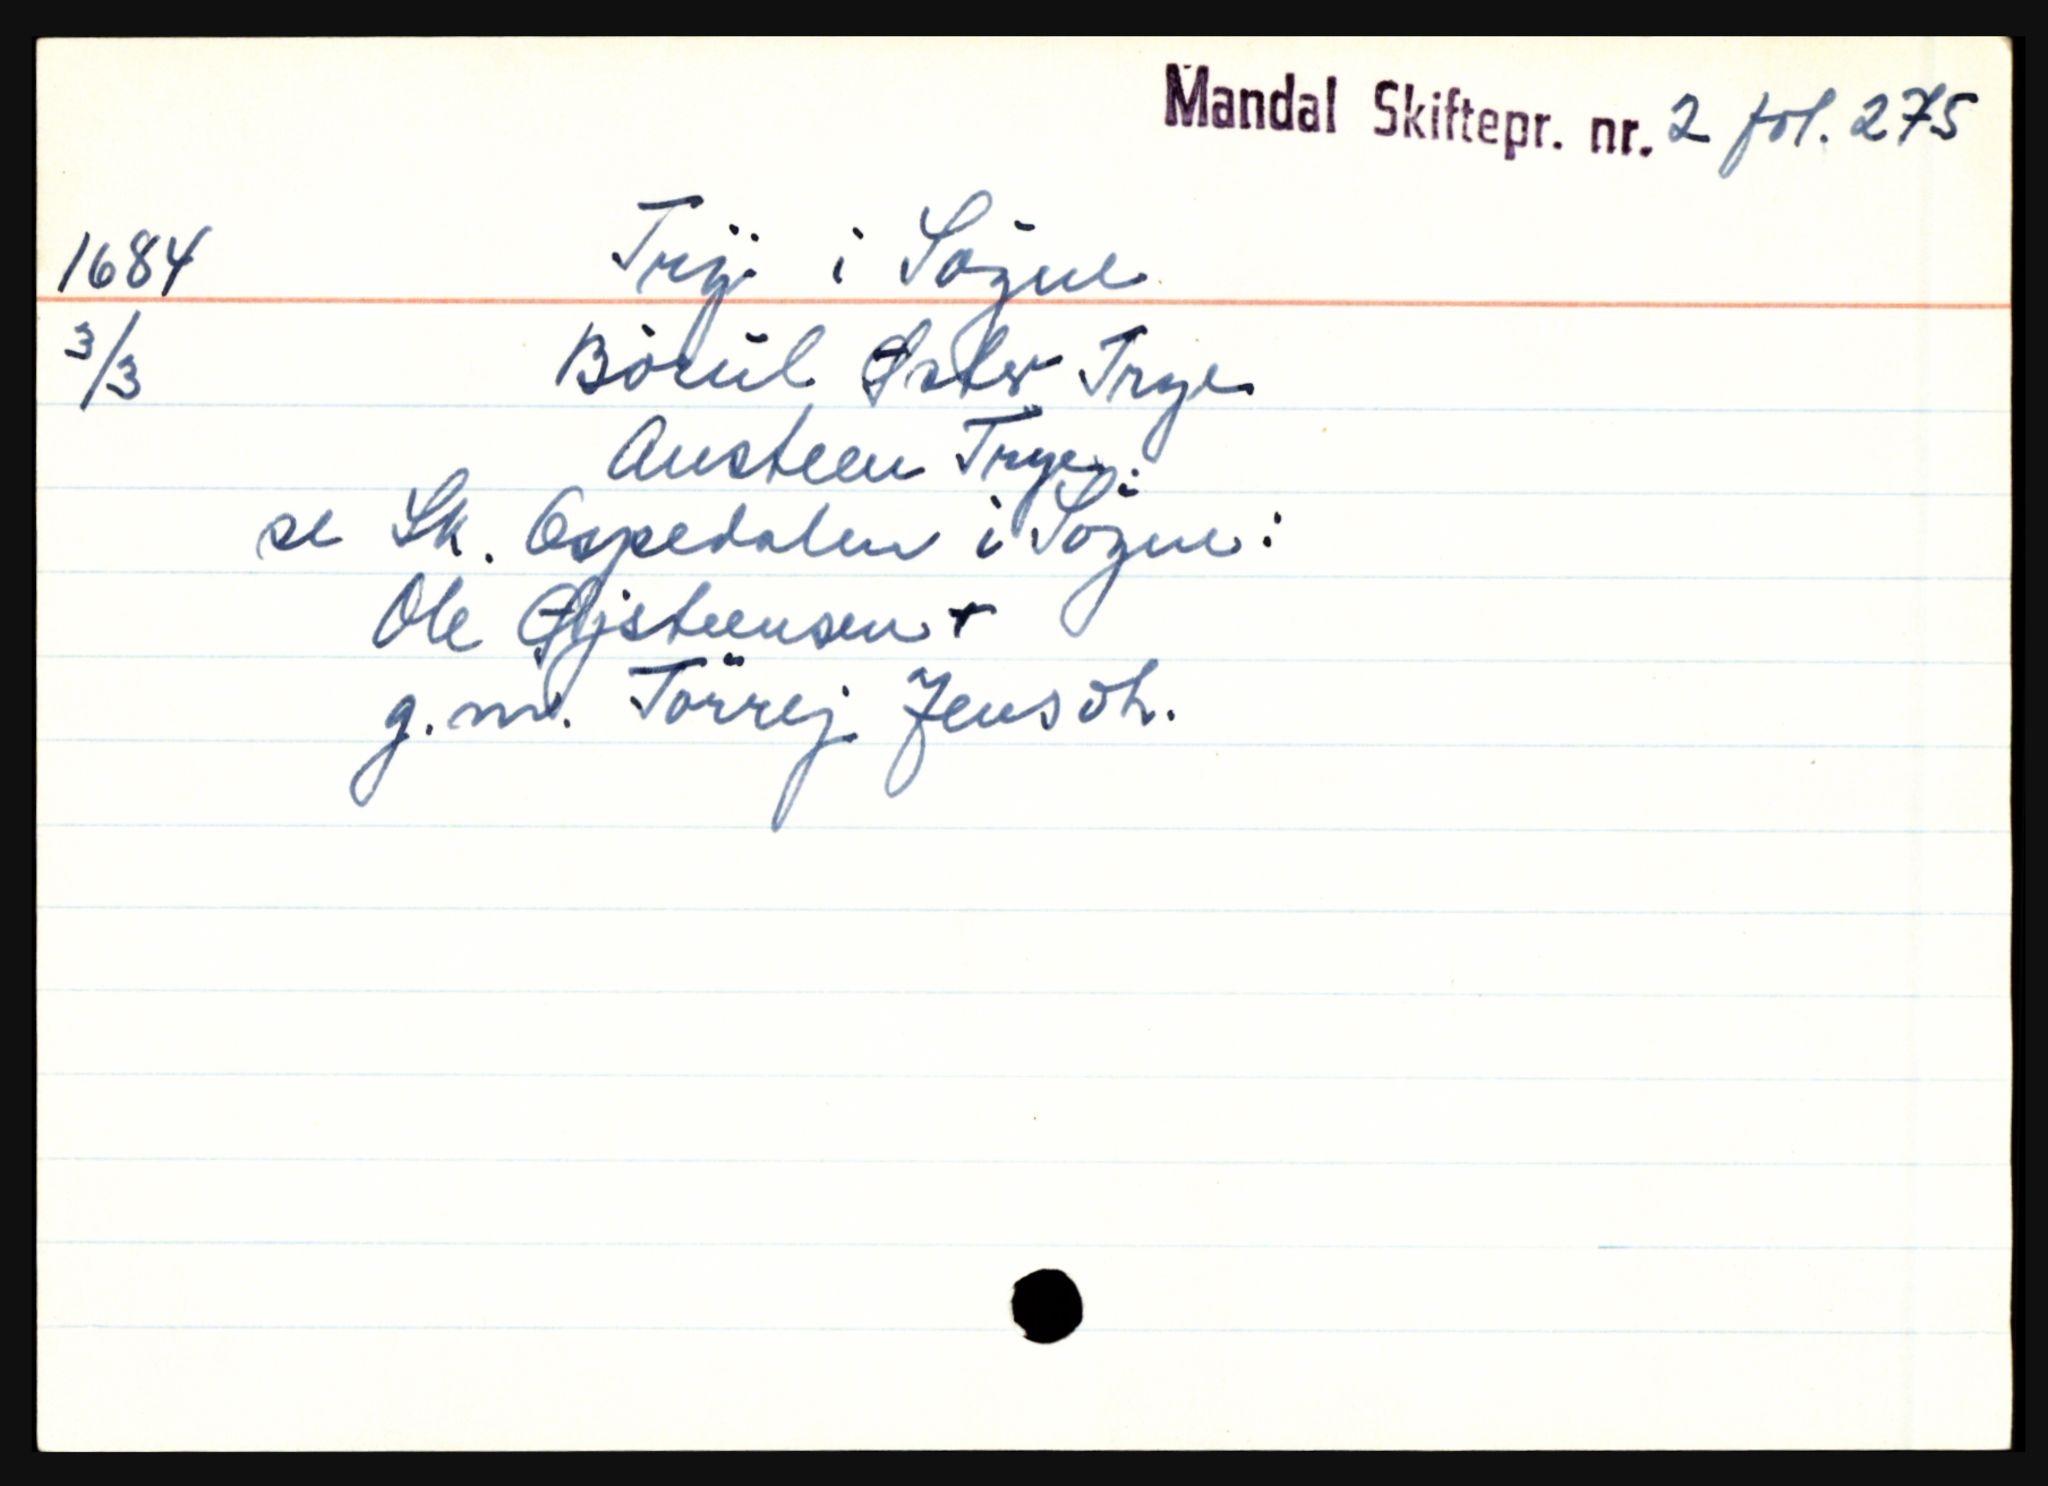 Mandal Skiftepr. nr. 2 fol. 275
1684 Trÿ i Søgne
3/3 Börül Øster Trye
Austeen Trye.
se Sk. Ospedalen i Søgne:
Ole Øjsteensen +
g.m. Törrej Jensdh.